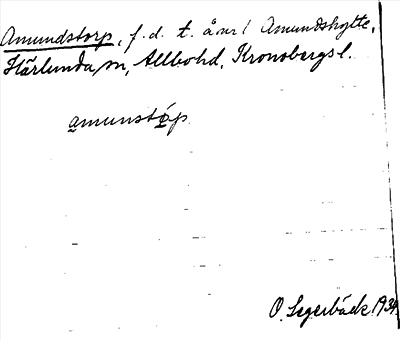 Amundstorp, f.d. t. å nr 1 Amundshytte,
Härlunda sn, Allbohd, Kronobergs l.
amunstórp
O. Segerbäck 1934